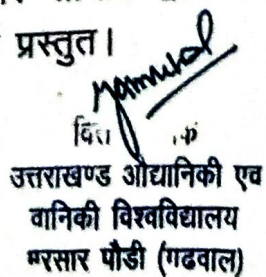 प्रस्तुत।
उत्तराखण्ड औद्यानिकी एव
वानिकी विश्वविद्यालय
भरसार पौडी (गढवाल)